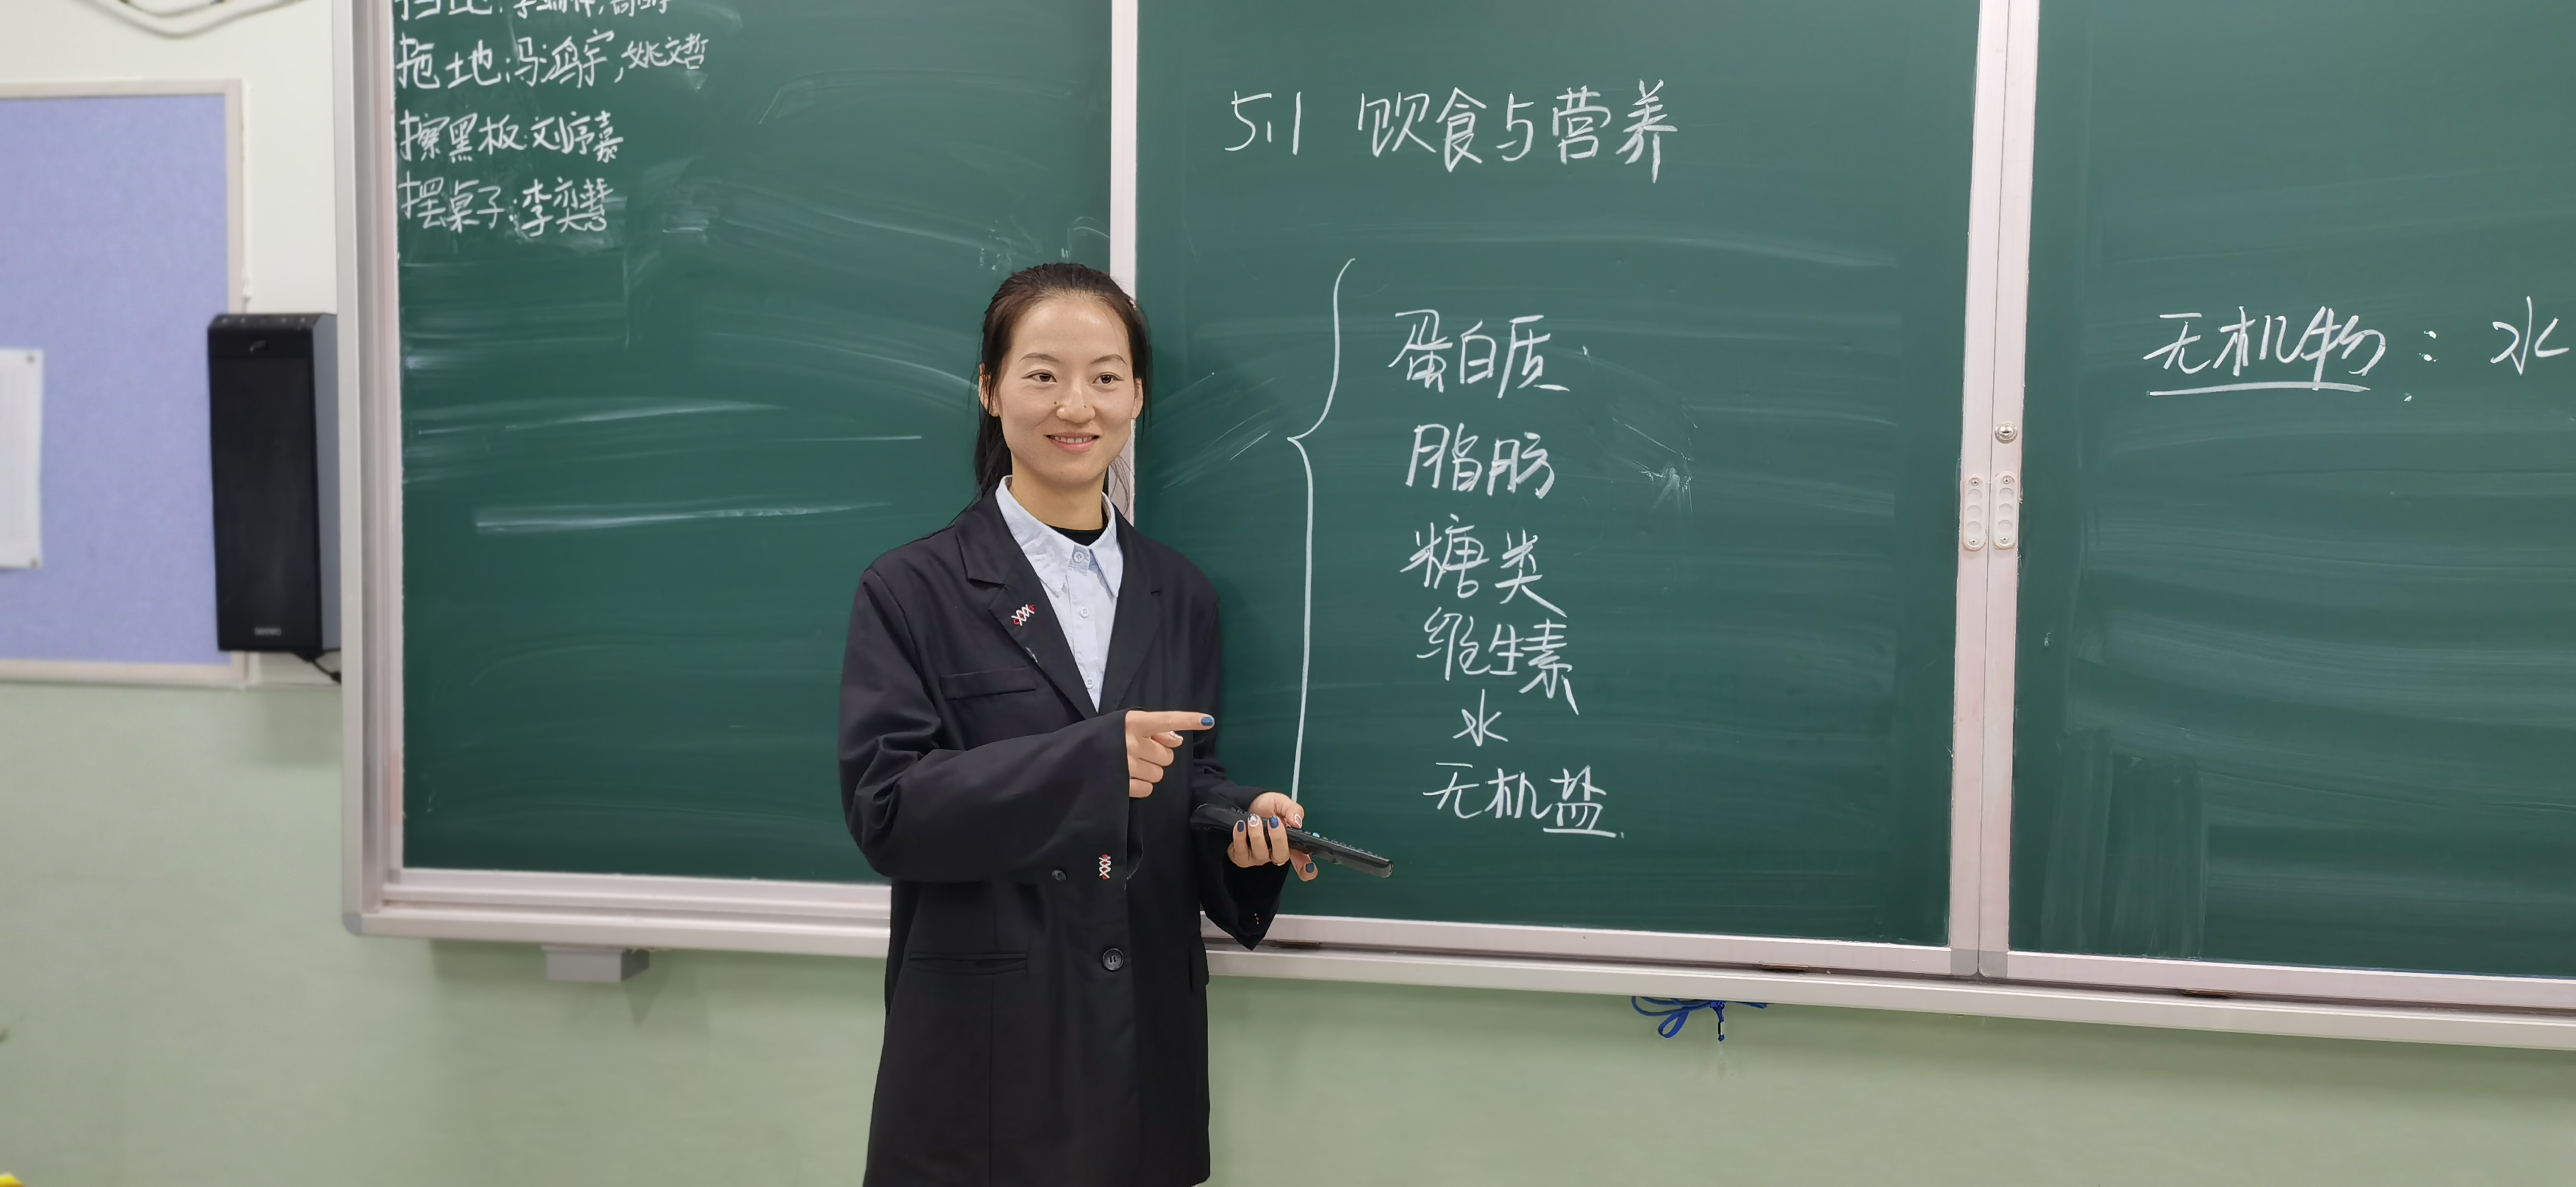 拖地:冯鸿宇,姚文哲
擦黑板:刘妤嘉
摆桌子:李奕慧
5.1 饮食与营养
蛋白质
脂肪
糖类
维生素
水
无机盐
无机物:水